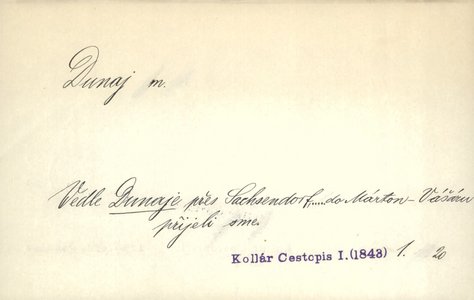 Dunaj m.
Vedle Dunaje přes Sachsendorf,.... do Márton-Vášáru
přijeli sme.
Kollár Cestopis I.(1843) 1. 20